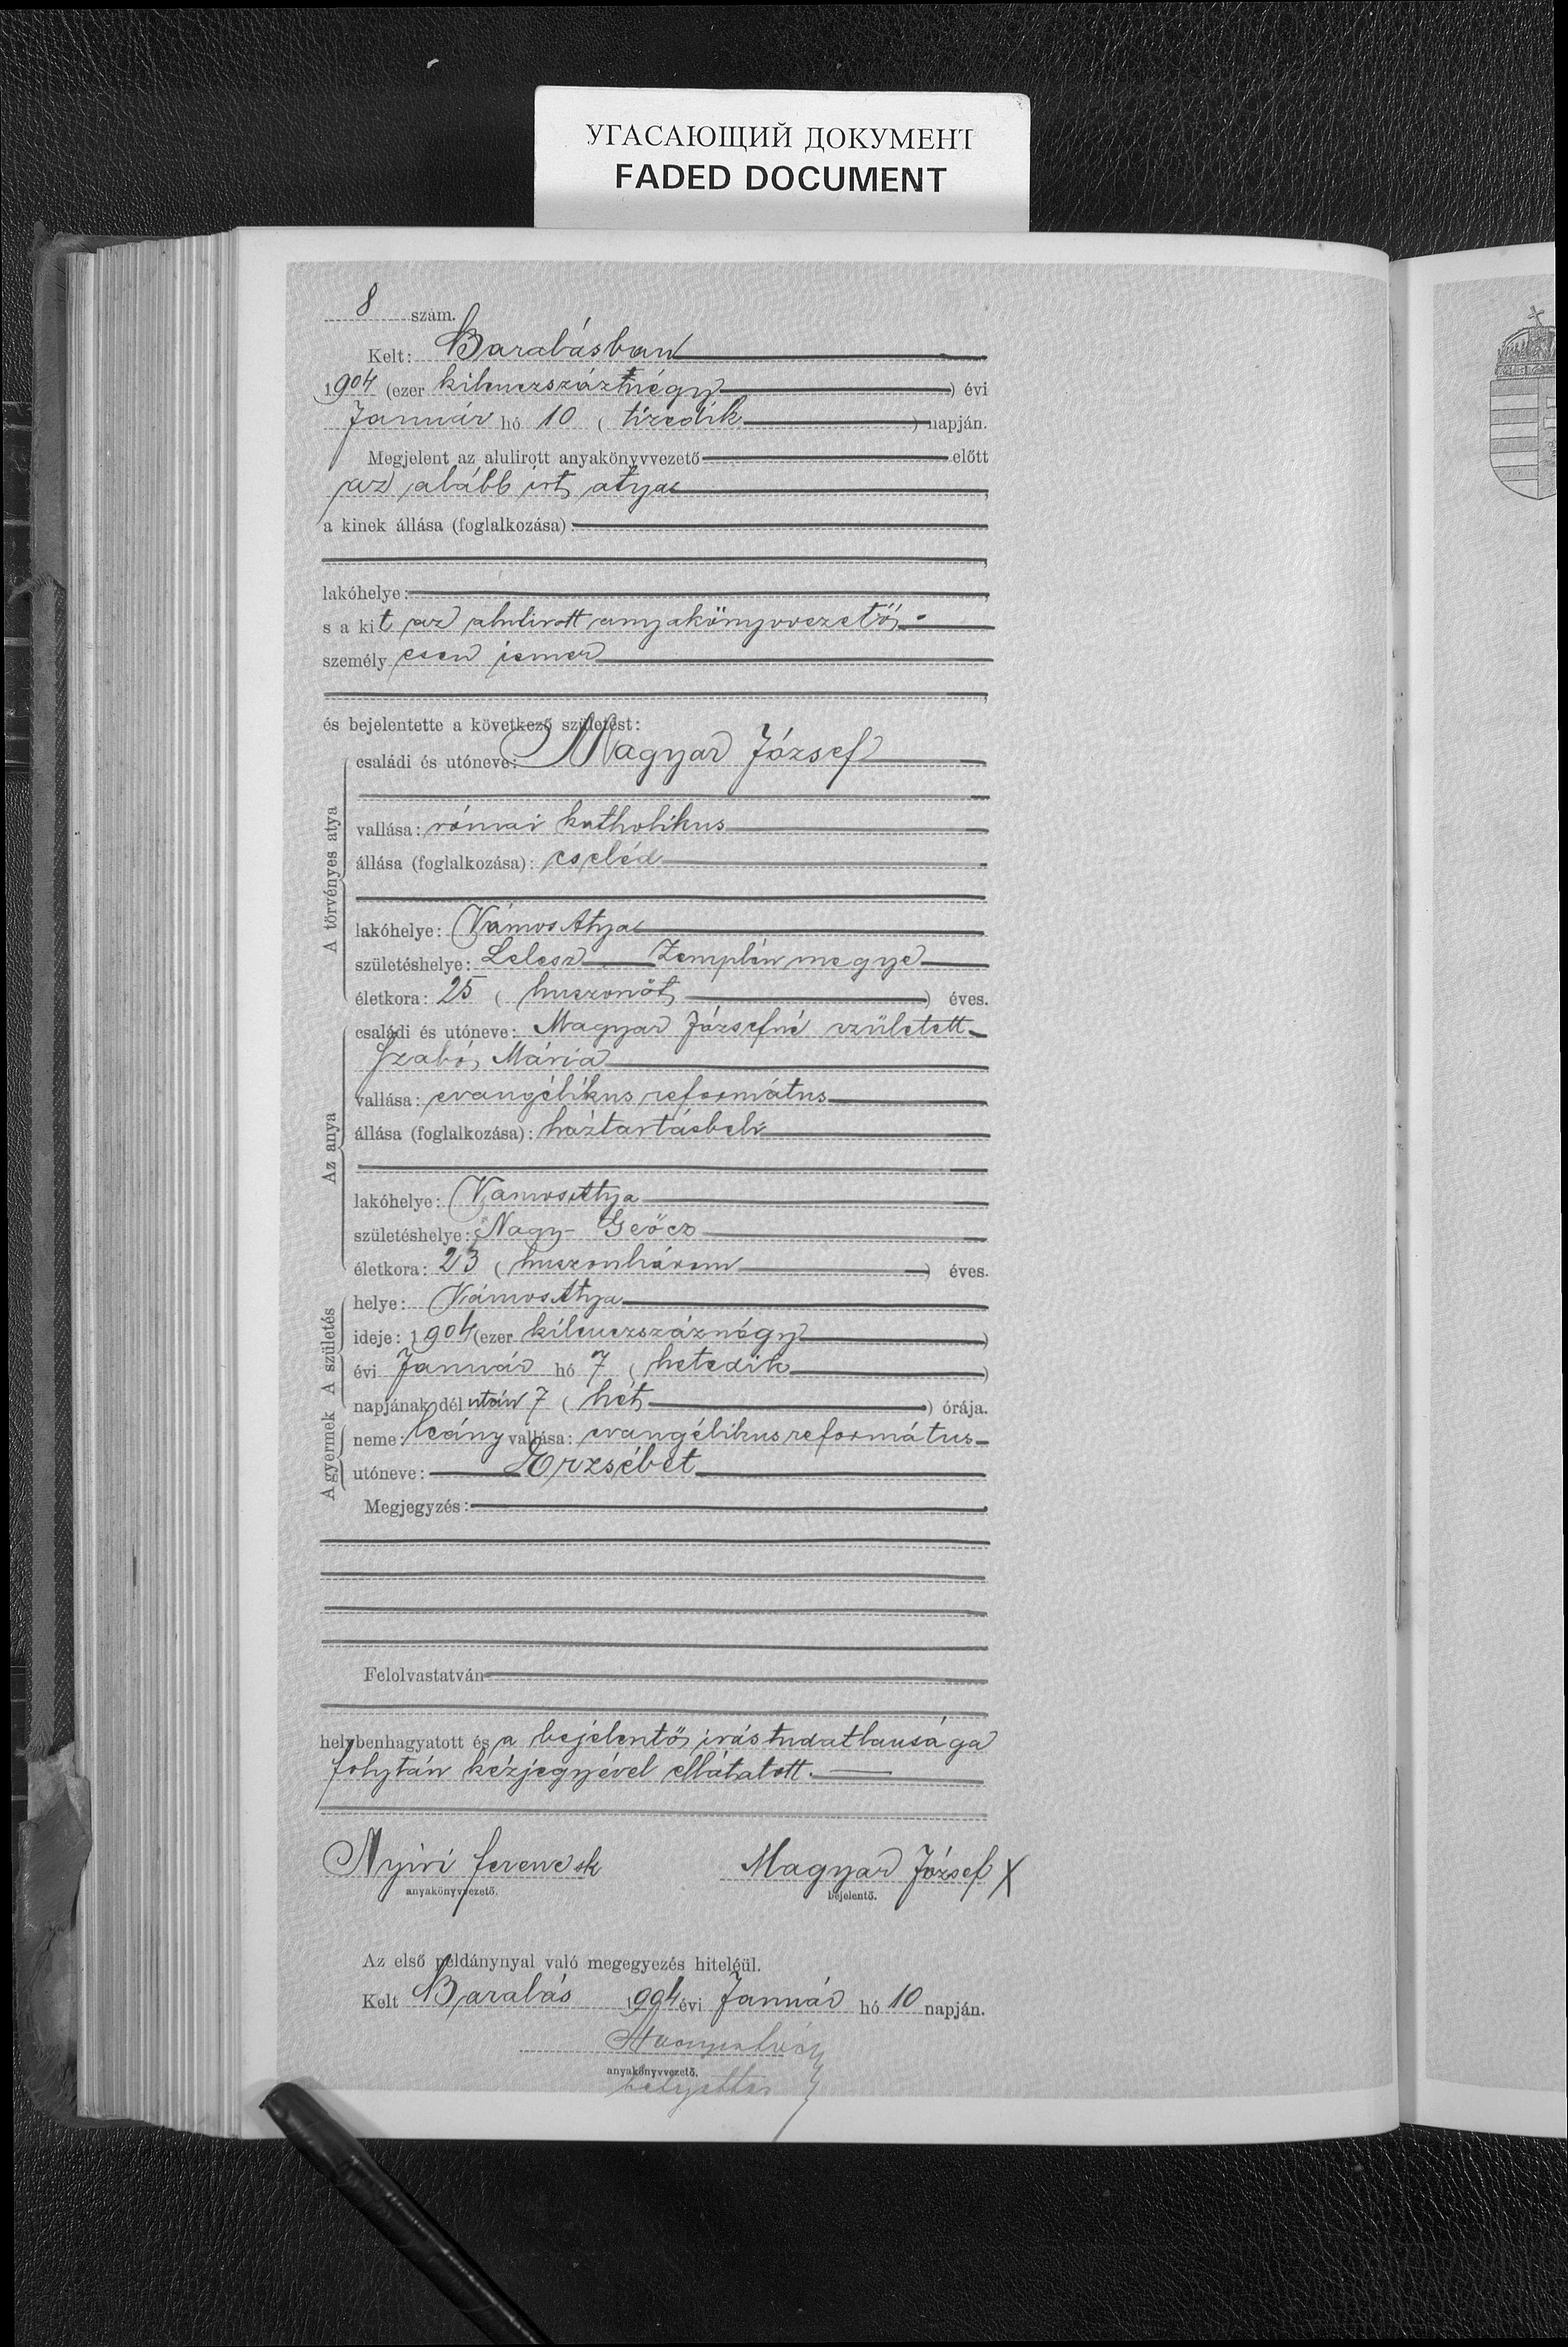 УГАСАЮЩИЙ ДОКУМЕНТ
FADED DOCUMENT
8 szám.
Kelt: Barabásban
1904 (ezer kilenczszáznégy) évi
Január hó 10 (tizedik) napján.
Megjelent az alulirott anyakönyvvezető előtt
az alább irt atya
a kinek állása (foglalkozása):
lakóhelye:
s a kit az alulirott anyakönyvvezető
személyesen ismer
és bejelentette a következő születést:
A törvényes atya
családi és utóneve: Magyar József
vallása: római katholikus
állása (foglalkozása): cseléd
lakóhelye: Vámos Atya
születéshelye: Lelesz Zemplén megye
életkora: 25 (huszonöt) éves.
Az anya
családi és utóneve: Magyar Józsefné született
Szabó Mária
vallása: evangélikus református
állása (foglalkozása): háztartásbeli
lakóhelye: Vamos Atya
születéshelye: Nagy-Geőcz
életkora: 23 (huszonhárom) éves.
A születés
helye: Vámos Atya
ideje: 1904 (ezer kilenczszáznégy)
évi Január hó 7 (hetedik)
napjának dél után 7 (hét) órája.
A gyermek
neme: leány vallása: evangélikus református
utóneve: Erzsébet
Megjegyzés:
Felolvastatván
helybenhagyatott és a bejelentő irástudatlansága
folytán kézjegyével ellátatott.
Nyiri ferencz sk Magyar József X
anyakönyvvezető. bejelentő.
Az első példánynyal való megegyezés hiteléül.
Kelt Barabás 1904 évi Január hó 10 napján.
anyakönyvvezető.
helyettes